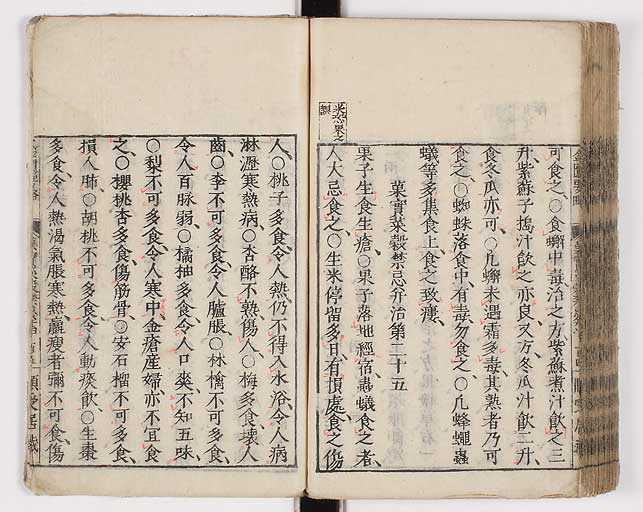 可食之○食蠏中毒治之方紫蘇煮汁飲之三
升紫蘇子搗汁飲之亦良又方冬瓜汁飲二升
食冬瓜亦可○凡蠏未遇霜多毒其熟者乃可
食之○蜘蛛落食中有毒勿食之○凡蜂蠅蟲
蟻等多集食上食之致瘻
菓實菜穀禁忌并治第二十五
果子生食生瘡○果子落地經宿蟲蟻食之者
人大忌食之○生米停留多日有損處食之傷
人○桃子多食令人熱仍不得入水浴令人病
淋瀝寒熱病○杏酪不熟傷人○梅多食壞人
齒○李不可多食令人臚脹○林檎不可多食
令人百脉弱○橘柚多食令人口爽不知五味
○梨不可多食令人寒中金瘡產婦亦不宜食
之○櫻桃杏多食傷筋骨○安石榴不可多食
損人肺○胡桃不可多食令人動痰飲○生棗
多食令人熱渴氣脹寒熱羸瘦者彌不可食傷